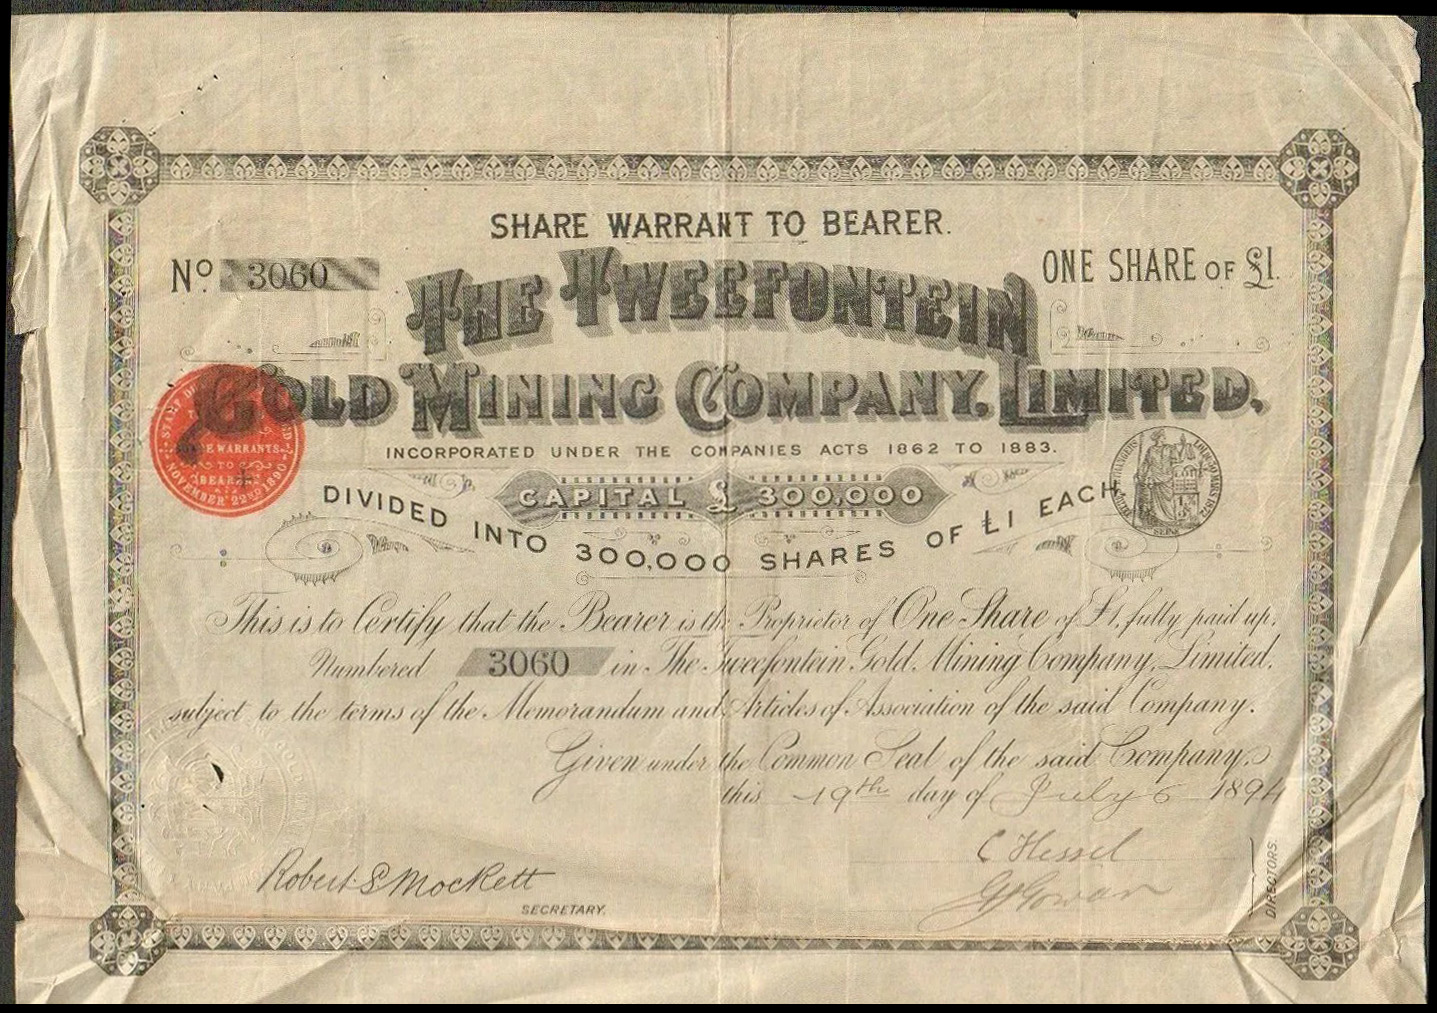 SHARE WARRANT TO BEARER.
No. 3060
ONE SHARE OF £1.
THE TWEEFONTEIN
GOLD MINING COMPANY, LIMITED,
INCORPORATED UNDER THE COMPANIES ACTS 1862 TO 1883.
CAPITAL £ 300,000
DIVIDED INTO 300,000 SHARES OF £1 EACH
WARRANTS
TO
BEARER
NOVEMBER 22ND 1890
This is to Certify that the Bearer is the Proprietor of One Share of £1, fully paid up,
Numbered 3060 in The Tweefontein Gold Mining Company, Limited,
subject to the terms of the Memorandum and Articles of Association of the said Company.
Given under the Common Seal of the said Company,
this 19th day of July 1894
C Hessel
Robert S Mockett
SECRETARY.
DIRECTORS.